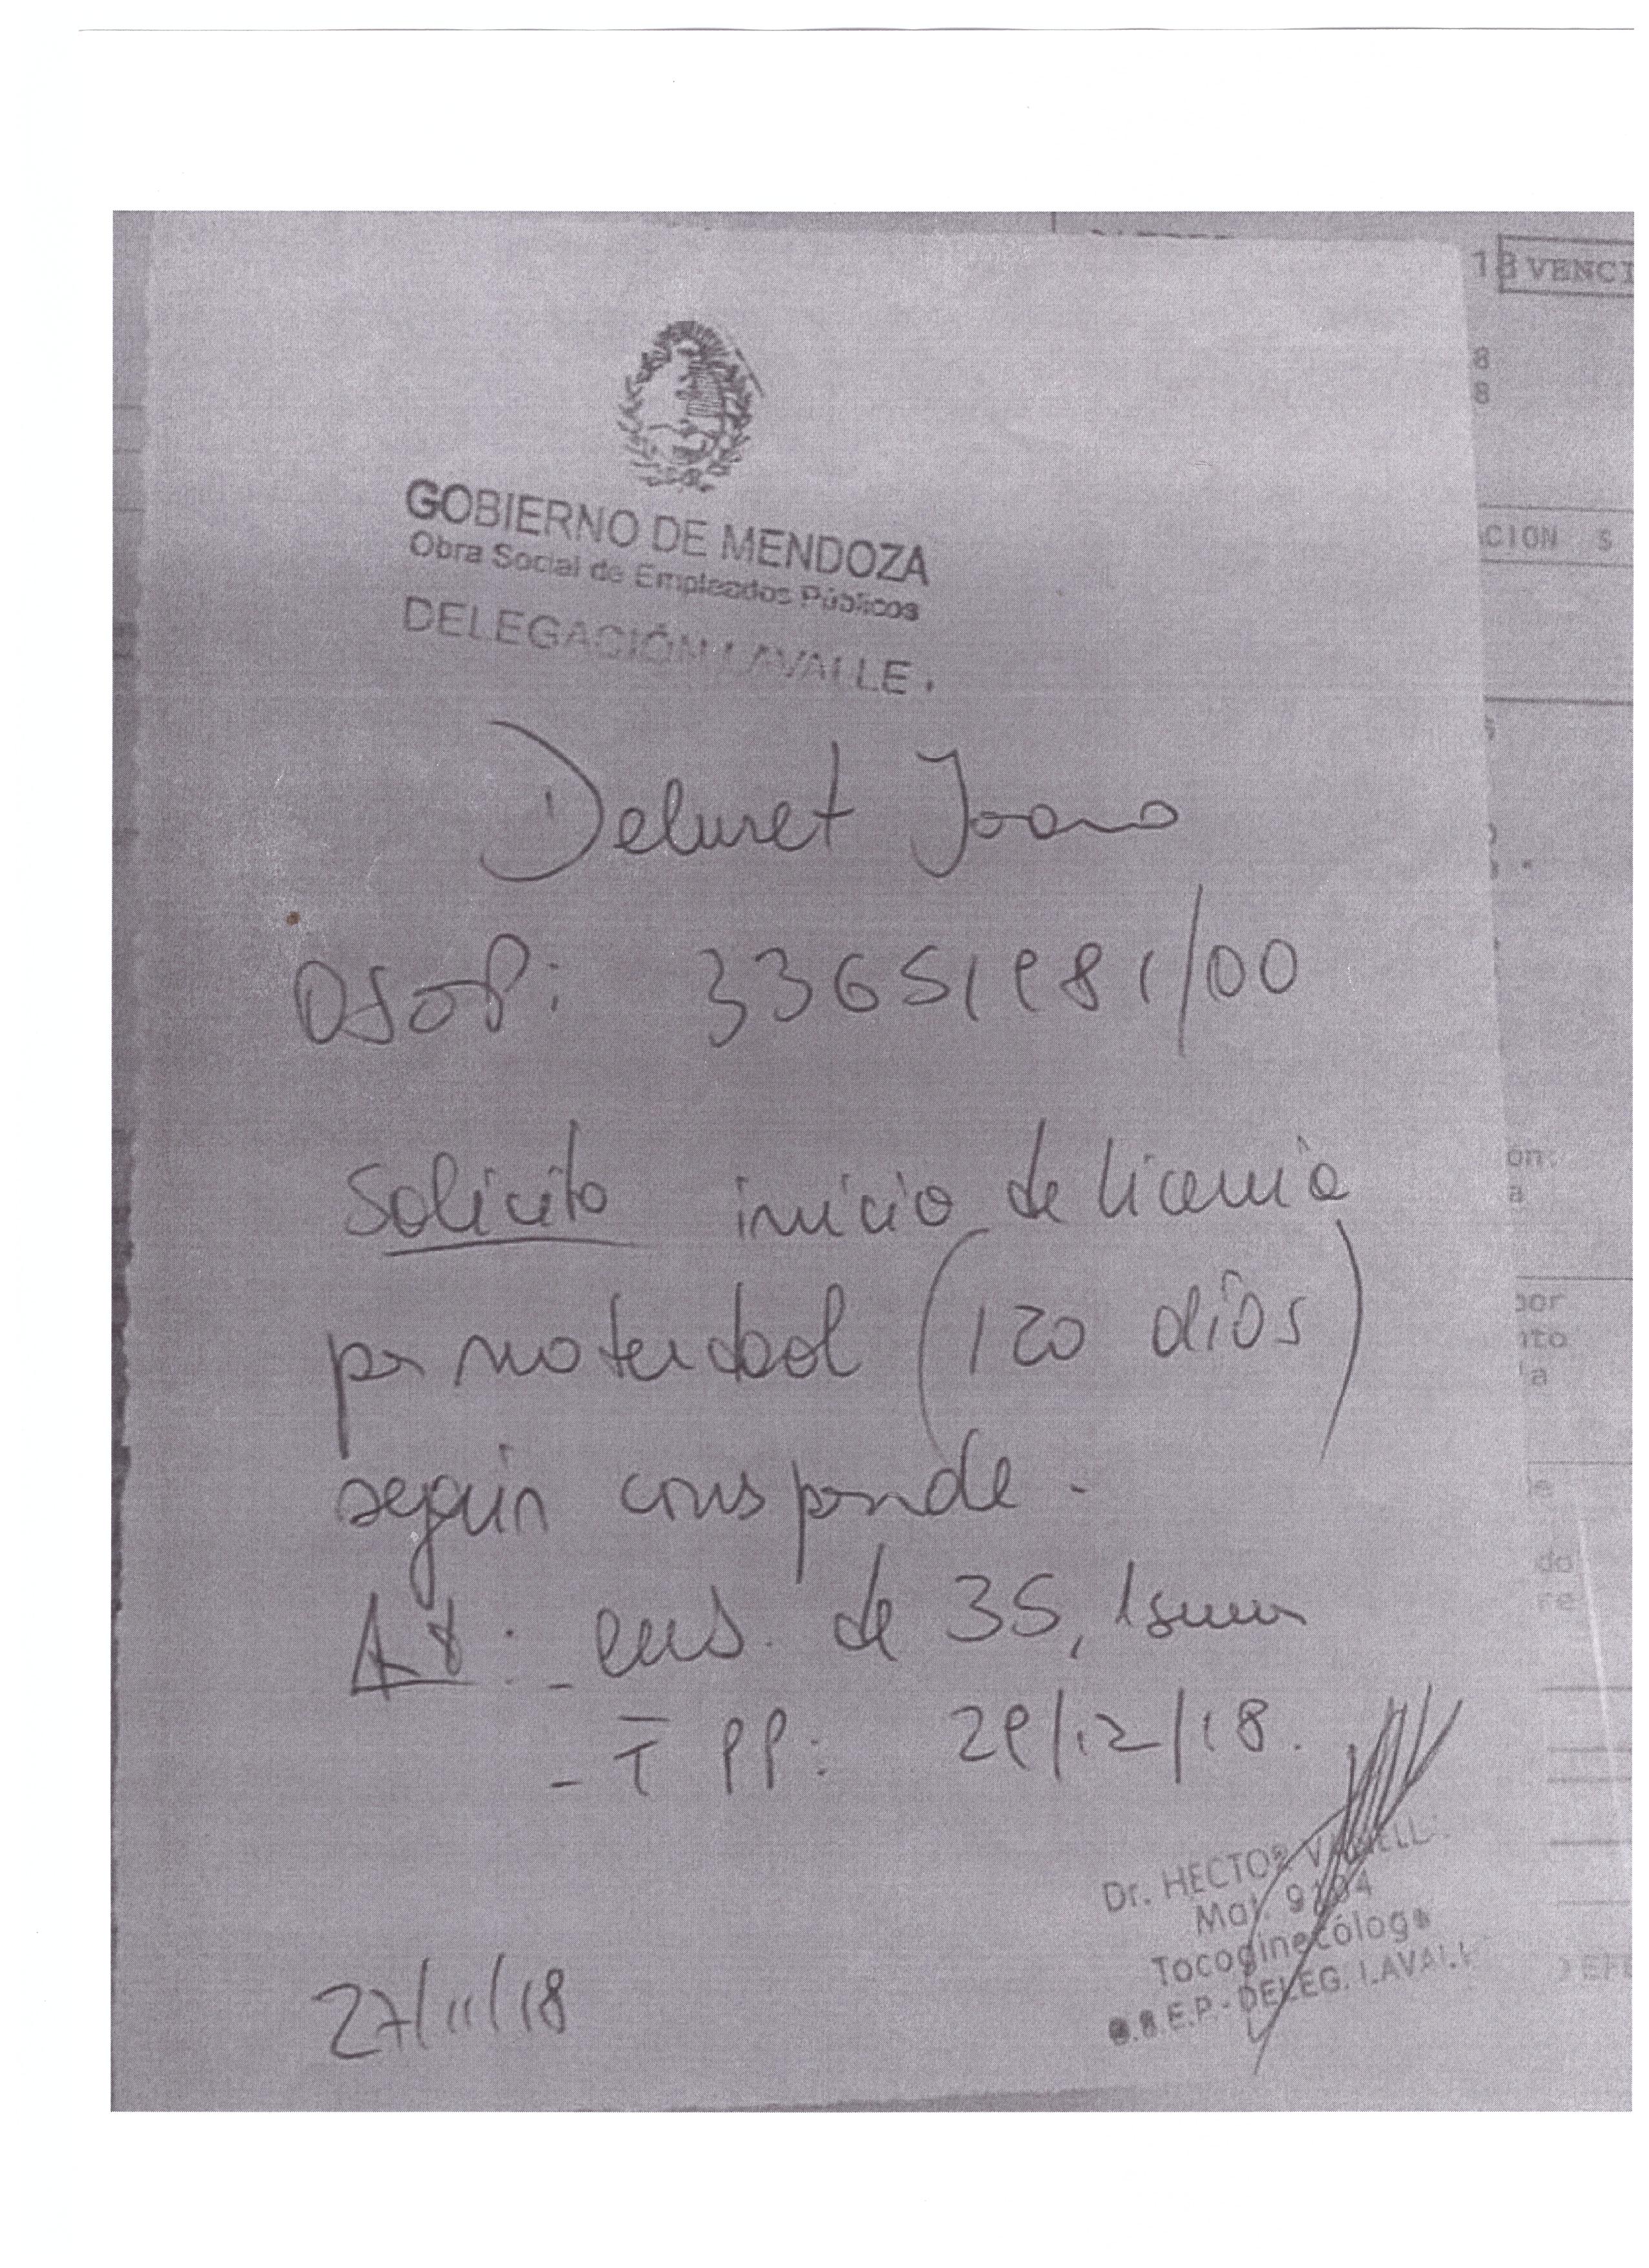 GOBIERNO DE MENDOZA
Obra Social de Empleados Públicos
DELEGACIÓN LAVALLE
Joana
OSEP: 33651981/00
Solicito inicio de licencia
por maternidad (120 días)
según corresponde.
de 35, 1 sem
- FPP: 29/12/18.
Dr. HECTOR
Mat. 9194
Tocoginecólogo
O.S.E.P - DELEG. LAVALLE
27/11/18
18 VENCI
8
8
ACION S
on:
a
por
nto
la
do
re